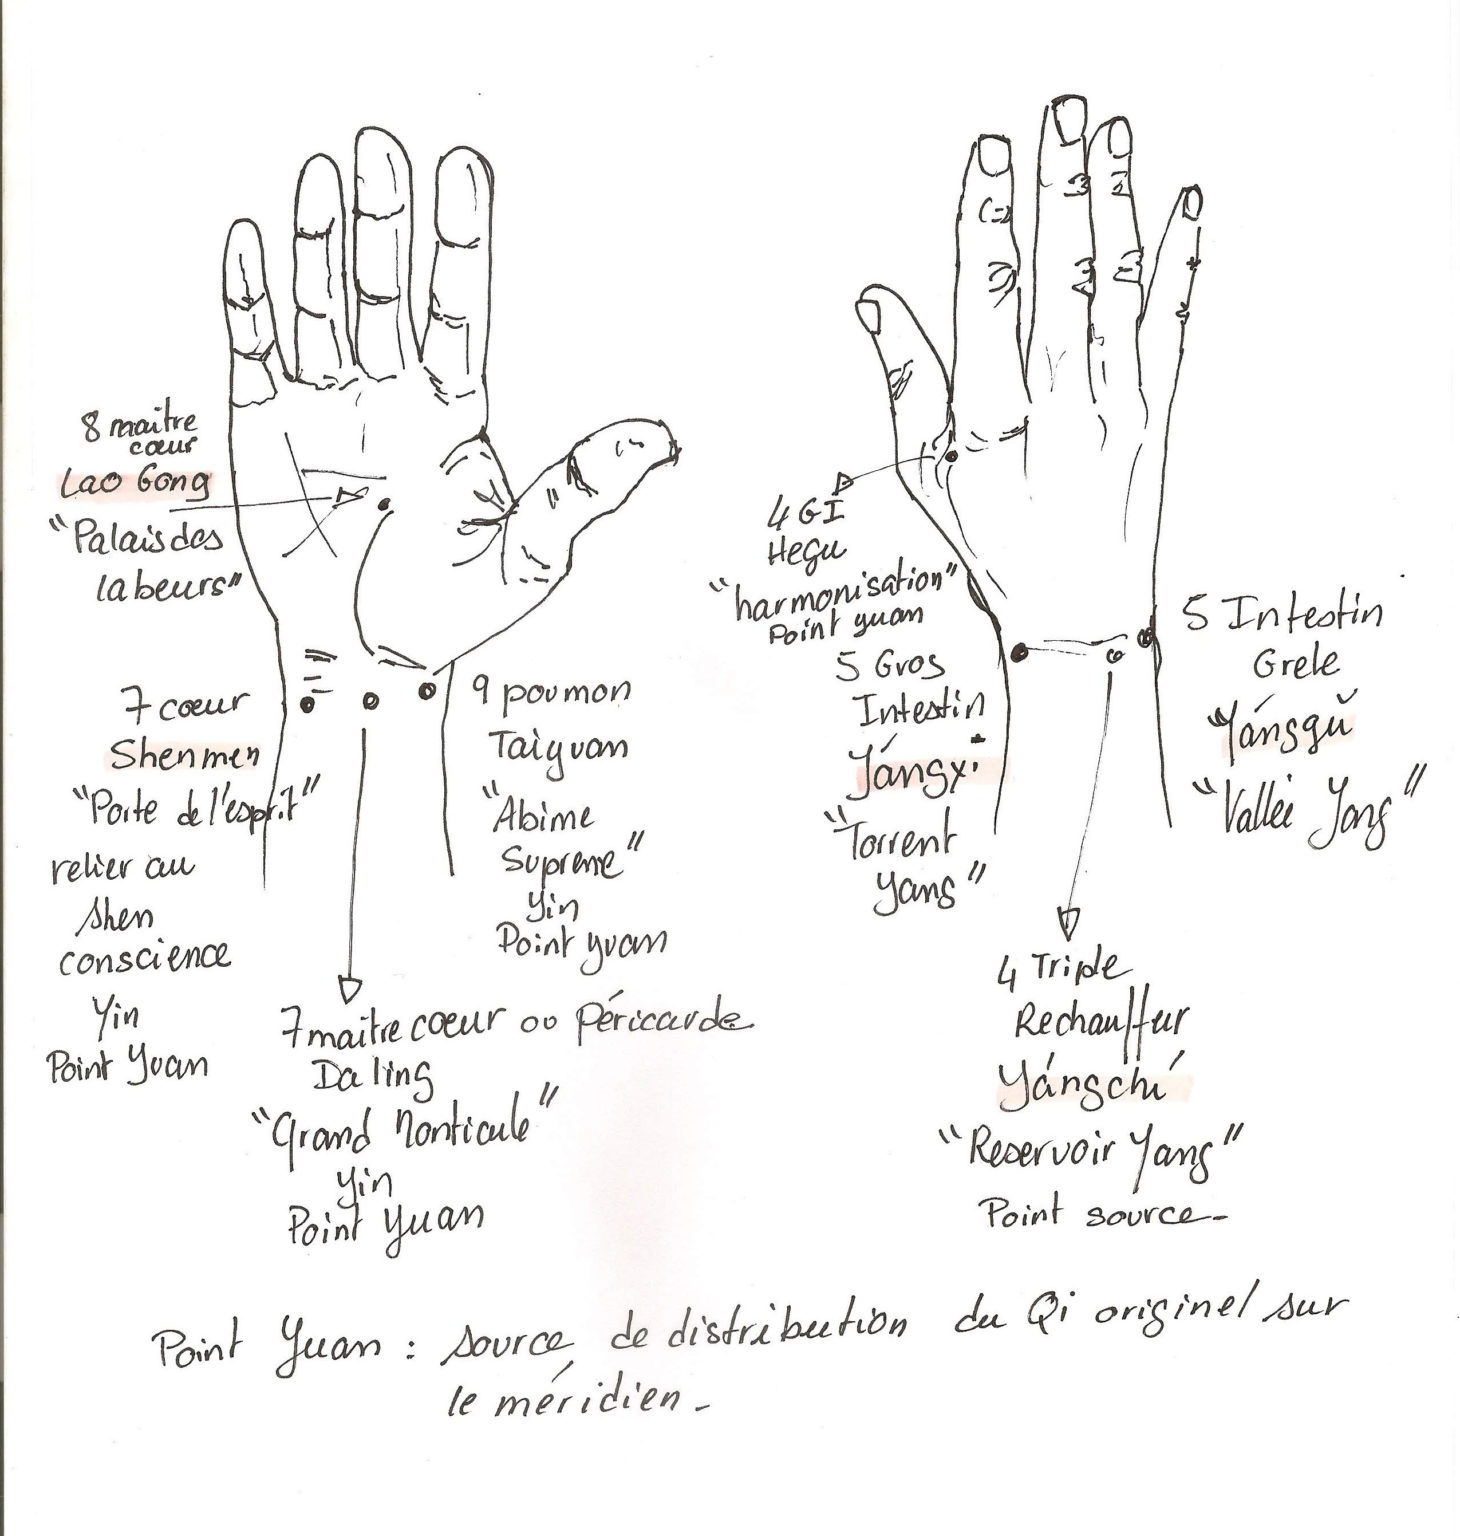 8 maitre
cœur
Lao Gong
"Palais des
labeurs"
7 cœur
Shenmen
"Porte de l'esprit"
relier au
shen
conscience
Yin
Point Yuan
9 poumon
Taiyuan
"Abime
Supreme"
Yin
Point yuan
7 maitre cœur ou Péricarde
Da ling
"Grand Monticule"
Yin
Point Yuan
4 GI
Hegu
"harmonisation"
Point yuan
5 Gros
Intestin
Yángxi
"Torrent
Yang"
5 Intestin
Grele
Yánggǔ
"Vallei Yang"
4 Triple
Rechauffur
Yángchí
"Reservoir Yang"
Point source -
Point Yuan : source de distribution du Qi originel sur
le méridien -